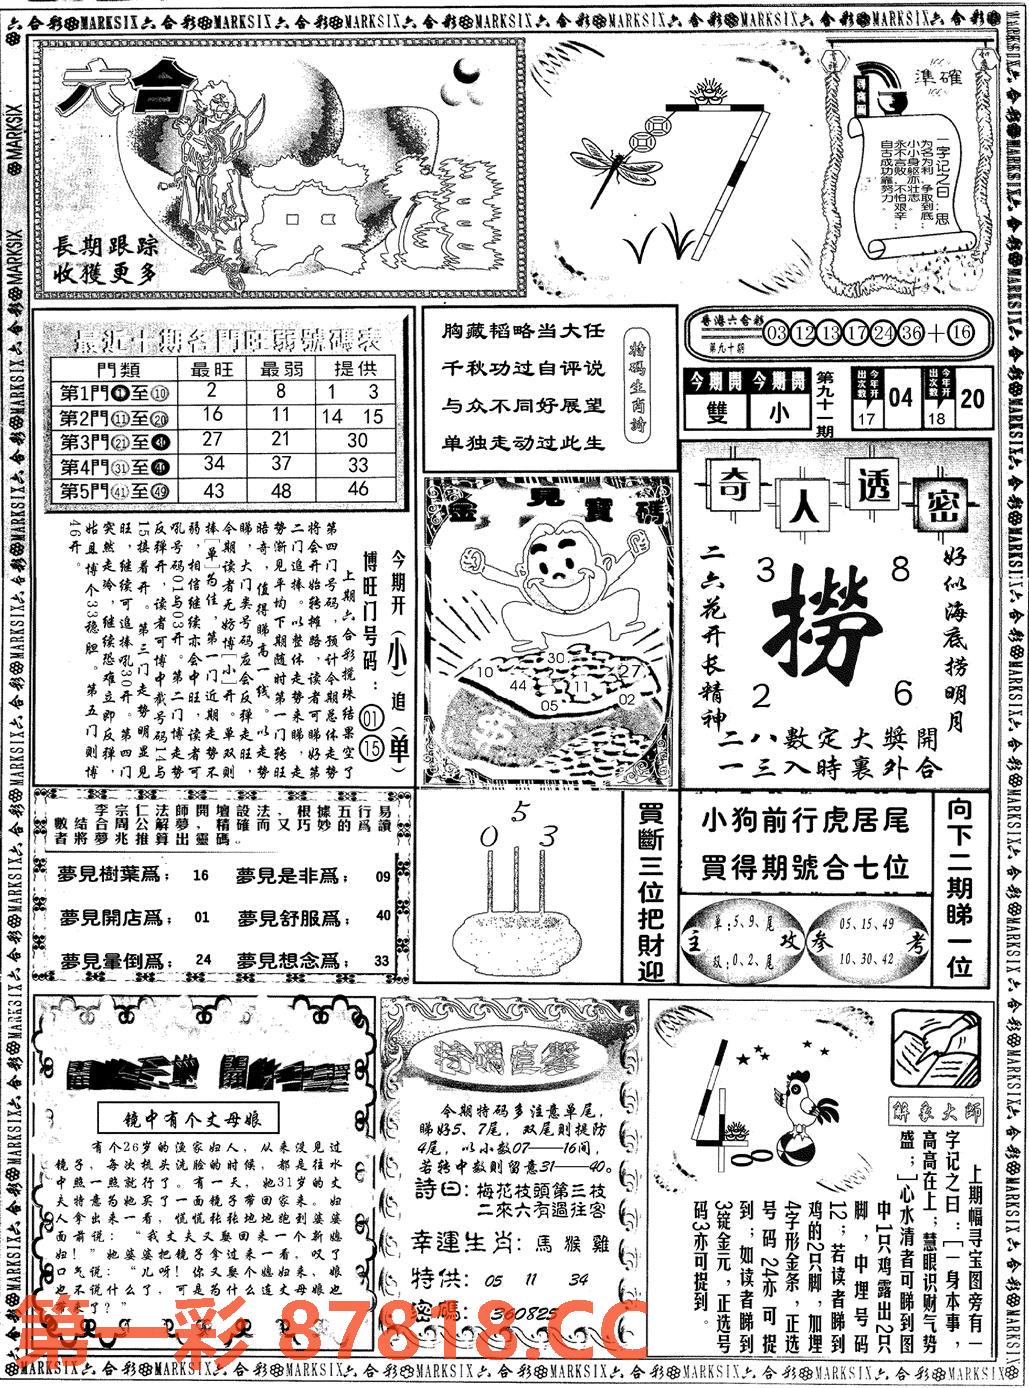 六合彩MARKSIX
六合
長期跟踪
收獲更多
準確
一字记之曰:思
为名为利 争取到底;
小小身躯亦壮志。
永不言败 不怕艰辛;
自古成功靠努力。
最近十期各門旺弱號碼表
門類 最旺 最弱 提供
第1門①至⑩ 2 8 1 3
第2門⑪至⑳ 16 11 14 15
第3門㉑至㉚ 27 21 30
第4門㉛至㊵ 34 37 33
第5門㊶至㊾ 43 48 46
今期开(小)追(单)
博旺门号码:01 15
上期六合彩搅珠结果空了
第四门号码,预计今期总体走势
将会开始转摊路,读者可睇好第
二门追捧。以整体走势来睇,走
势渐见平均下期随时第一门转旺
晤奇,值得睇高一线。以走势
睇,大门类号码应会反弹走旺,
今期读者无妨博[小]开。单双则
捧[单]为佳,第一门近期走势不
弱,相信继续亦会中旺,读者可
吼号码01与03开。第二门博走势
反弹开,读者可博中截号码14与
15接着开。第三门走势明显见
旺,继续可追捧吼30开。第四门
突然走冷,继续恐难立即反弹,
姑且博个33稳胆。第五门则博
46开。
胸藏韬略当大任
千秋功过自评说
与众不同好展望
单独走动过此生
特码生肖詩
香港六合彩
第九十期
03 12 13 17 24 36 + 16
今期開 雙
今期開 小
第九十一期
今年开出次数 17 04
今年开出次数 18 20
金見寶碼
10 30 27 44 11 02 05
奇人透密
好似海底捞明月
二六花开长精神
3 8
撈
2 6
二八數定大獎開
一三入時裏外合
李宗仁法師開壇設法,根據五行易
數結合周公解夢,精確而又巧妙的爲讀
者將夢兆推算出靈碼。
夢見樹葉爲; 16 夢見是非爲; 09
夢見開店爲; 01 夢見舒服爲; 40
夢見暈倒爲; 24 夢見想念爲; 33
0 5 3
買斷三位把財迎
小狗前行虎居尾
買得期號合七位
主攻
单:5、9、尾
双:0、2、尾
參考
05、15、49
10、30、42
向下二期睇一位
镜中有个丈母娘
有个26岁的渔家妇人,从来没见过
镜子,每次梳头洗脸的时候,都是往水
中照一照就行了。有一天,她31岁的丈
夫特意为她买了一面镜子带回家来。妇
人拿出来一看,慌慌张张地地跑到婆婆
面前说:“我丈夫又娶回来一个新媳
妇!”她婆婆把镜子拿过来一看,叹了
口气说:“儿呀!你又娶个媳妇来,娘
也不说什么了,可是为什么连丈母娘也
带来了?”
特碼直擊
今期特码多注意单尾,
睇好5、7尾,双尾则提防
4尾,以小数07——16间,
若转中数则留意31——40。
詩曰:梅花枝頭第三枝
二來六有過往客
幸運生肖:馬 猴 雞
特供:05 11 34
密碼:360825
解象大師
上期幅寻宝图旁有一
字记之曰:[一身本事,
高高在上;慧眼识财气势
盛;]心水清者可睇到图
中1只鸡露出2只
脚,中埋号码
12;若读者睇到
鸡的2只脚,加埋
4字形金条,正选
号码24亦可捉
到;如读者睇到
3锭金元,正选号
码3亦可捉到。
第一彩 87818.CC